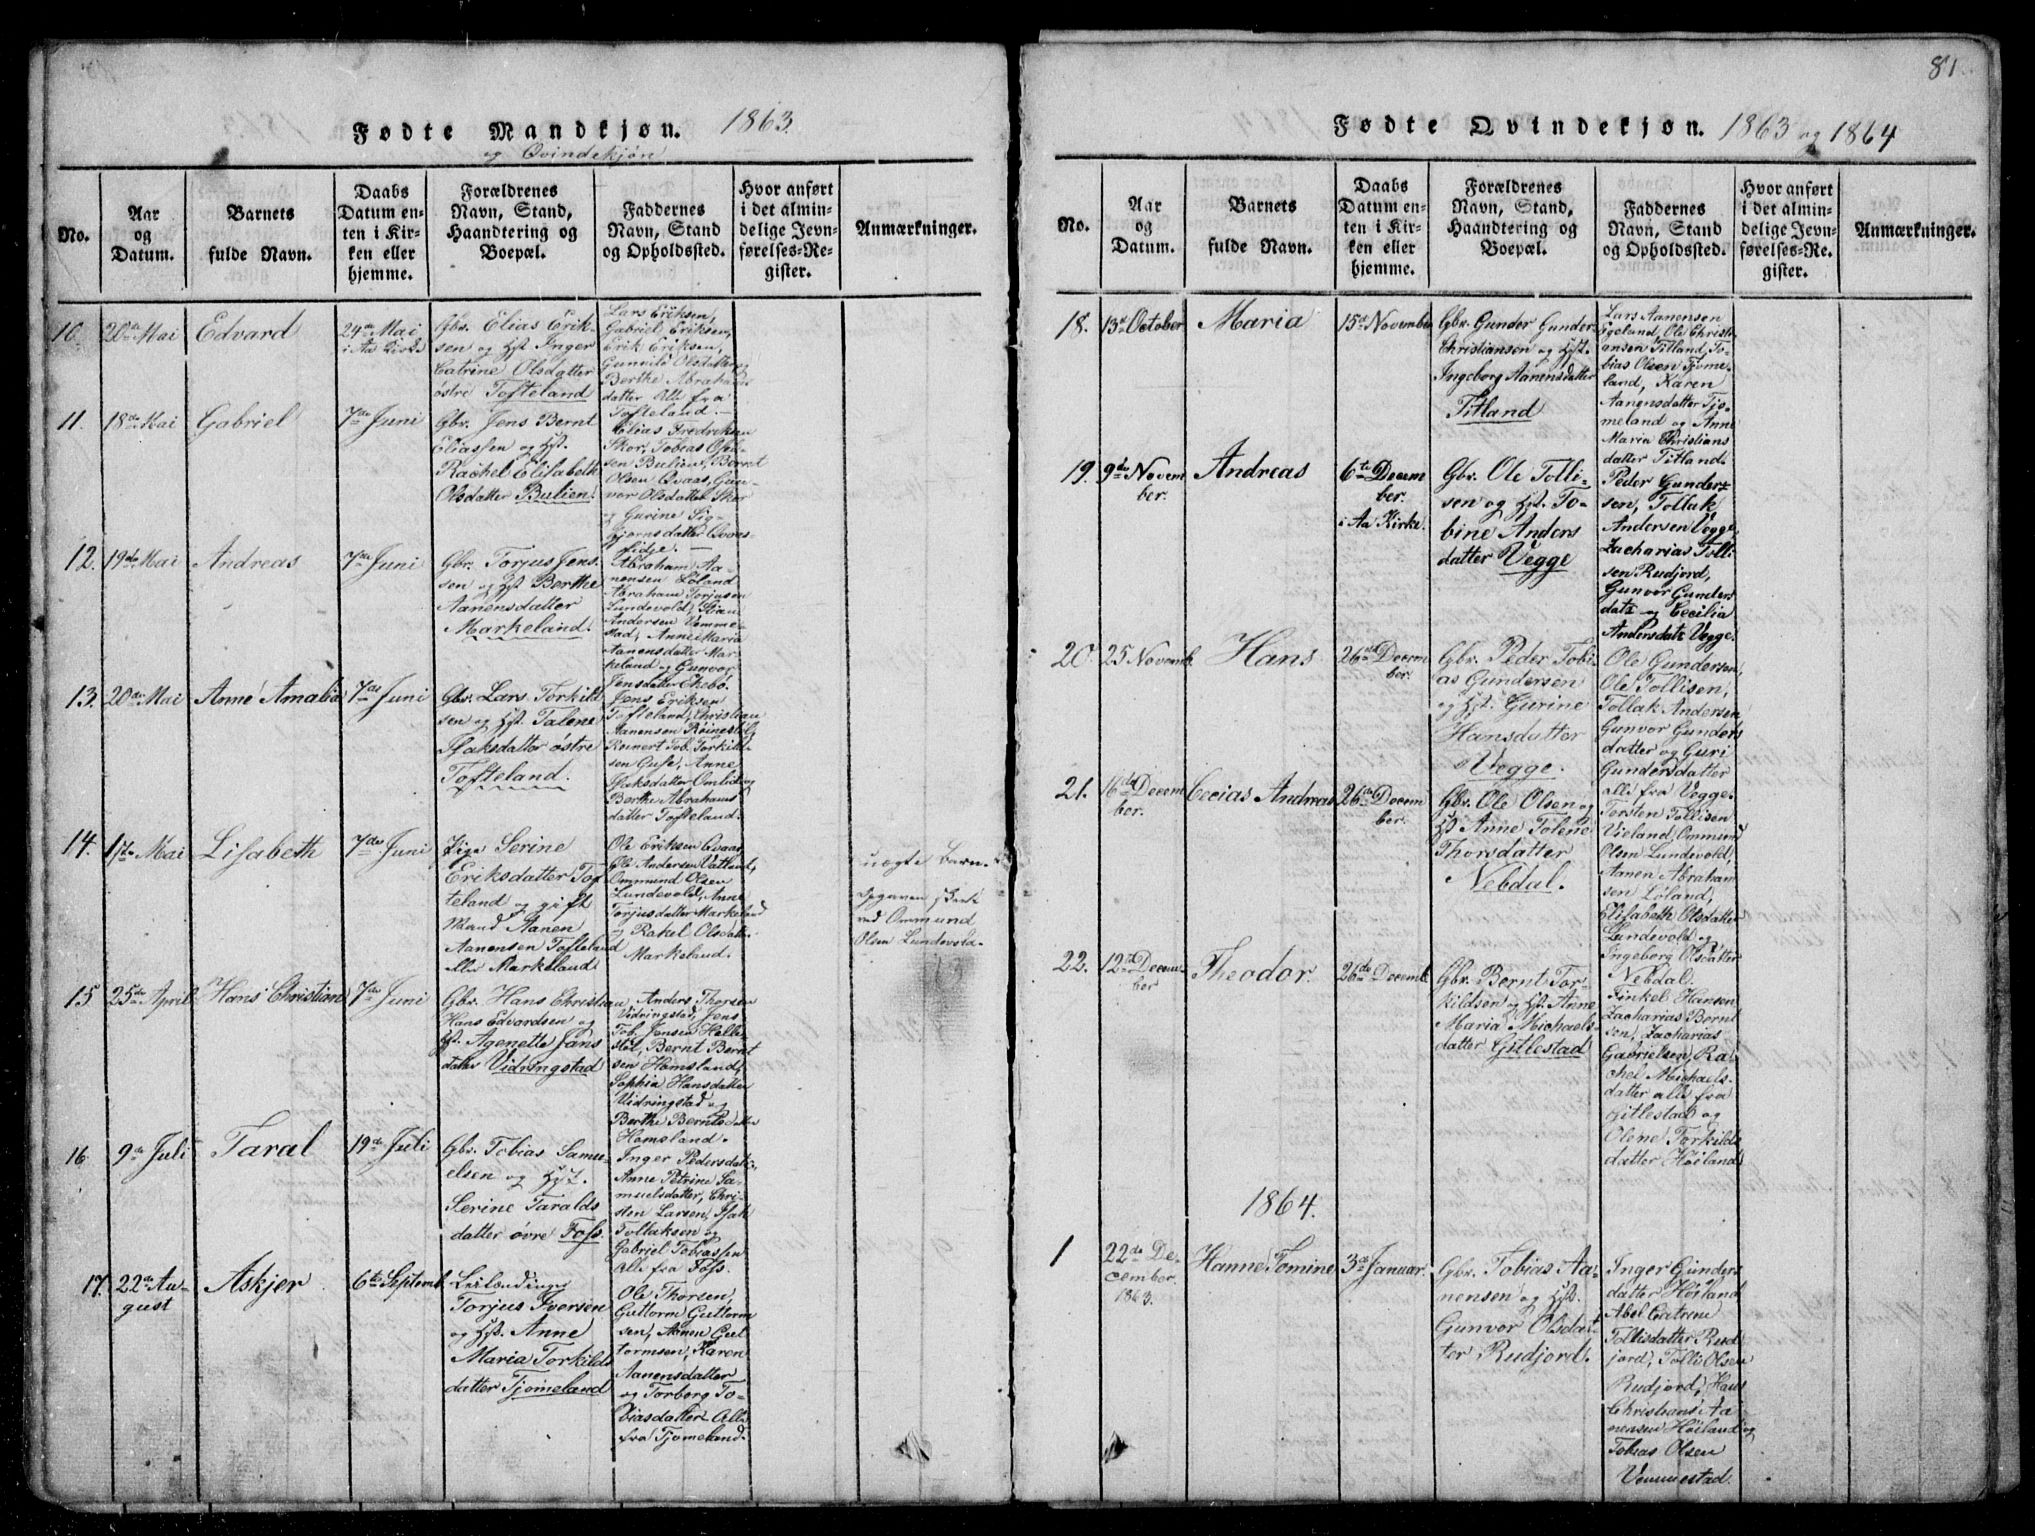 Fødte Mandkjøn. 1863.
og Qvindekjøn
No.
Aar
og
Datum.
Barnets
fulde Navn.
Daabs
Datum en-
ten i Kir-
ken eller
hjemme.
Forældrenes
Navn, Stand,
Haandtering og
Boepæl.
Faddernes
Navn, Stand
og Opholdssted.
Hvor anført
i det almin-
delige Jevn-
førelses-Re-
gister.
Anmærkninger.
10.
20de Mai
Edvard
24de Mai
i Aa Kirke
Gbr. Elias Erik-
sen og Hst. Inger
Catrine Olsdatter
østre Tofteland
Lars Eriksen,
Gabriel Eriksen,
Erik Eriksen,
Gunvild Olsdatter og
Berthe Abrahams
datter Alle fra
Tofteland.
11.
18de Mai
Gabriel
7de Juni
Gbr. Jens Bernt
Eliassen og Hst.
Rachel Elisabeth
Olsdatter Bulien.
Elias Fredriksen
Skor, Tobias
sen Bulien, Bernt
Olsen Qvaas, Gun-
vor Olsdatter Skor
og Gurine Sig-
bjørnsdatter Qvaas-
fidje.
12.
19de Mai
Andreas
7de Juni
Gbr. Torjus Jens-
sen og Hst Berthe
Aanensdatter
Markeland.
Abraham Aa-
nensen Løland
Abraham Torjusen
Lundevold, Stian
Andersen Vemme-
stad, Anne Maria
Aanensdatter Mar-
keland og Gunvor
Jensdatter Ekebø.
13.
20de Mai
Anne Amalia
7de Juni
Gbr. Lars Torkild
sen og Hst. Talene
Isaksdatter østre
Tofteland.
Jens Eriksen
Tofteland, Christian
Aanensen Røinestøl,
Reinert Tob. Torkild-
sen Guse, Anne
Isaksdatter Omlid og
Berthe Abrahams
datter Tofteland.
14.
17de Mai
Lisabeth
7de Juni
Pige Serine
Eriksdatter Tof
teland og gift
Mand Aanen
Aanensen Tofteland
eller Markeland
Ole Eriksen Qvaas
Ole Andersen Vatland,
Ommund Olsen
Lundevold, Anne
Torjusdatter Markeland
og Rakel Olsdatter
Markeland.
uægte Barn.
Opgaven skede
ved Ommund
Olsen Lundevold.
15
25de April
Hans Christian
7de Juni
Gbr. Hans Christian
Hans Edvardsen og
Hst. Agenette Jans
datter Vidringstad
Anders Thorsen
Vidringstad, Jens
Tob. Jensen Helle
støl, Bernt Bernt
sen Homsland,
Sophia Hansdatter
Vidringstad og
Berthe Berntsdatter
Homsland.
16
9de Juli
Taral
19de Juli
Gbr. Tobias Samu-
elsen og Hst.
Serine Taralds
datter øvre Foss.
Inger Pedersdatter,
Anne Petrine Sa-
muelsdatter, Chri-
sten Larsen, Isak
Tollaksen og
Gabriel Tobiassen
Alle fra Foss.
17.
22de Au-
gust
Askjer
6te Septemb.
Leilænding
Torjus Iversen
og Hst. Anne
Maria Torkilds
datter Tjomeland
Ole Thorsen,
Guttorm Guttorm
sen, Aanen Gut
tormsen, Karen
Aanensdatter
og Torborg To-
biasdatter Alle
fra Tjomeland.
81.
Fødte Qvindekjøn. 1863 og 1864
No.
Aar
og
Datum.
Barnets
fulde Navn.
Daabs
Datum en-
ten i Kir-
ken eller
hjemme.
Forældrenes
Navn, Stand,
Haandtering og
Boepæl.
Faddernes
Navn, Stand
og Opholdssted.
Hvor anført
i det almin-
delige Jevn-
førelses-Re-
gister.
Anmærkninger.
18.
13de October
Maria
15de November
Gbr. Gunder Gunder
Christiansen og Hst.
Ingeborg Aanensdatter
Titland
Lars Aanensen
Egeland, Ole Christi-
ansen Titland, To-
bias Olsen Tjome-
land, Karen
Aanensdatter Tjo-
meland og Anne
Maria Christians
datter Titland.
19.
9de Novem
ber.
Andreas
6te Decem
ber.
i Aa Kirke.
Gbr. Ole Tolli-
sen og Hst. To-
bine Anders
datter Vegge
Peder Gunder-
sen, Tollak
Andersen Vegge,
Zacharias Tolli
sen Rudjord,
Gunvor Gunders
datr og Cecilia
Andersdatr Vegge.
20.
25 Novemb.
Hans
26de Decem
ber.
Gbr. Peder Tobi-
as Gundersen
og Hst. Gurine
Hansdatter
Vegge.
Ole Gundersen,
Ole Tollisen,
Tollak Andersen
Gunvor Gunders
datter og Guri
Gundersdatter
alle fra Vegge.
21.
16de Decem
ber.
Cecias Andreas
26de Decem
ber.
Gbr. Ole Olsen og
Hst Anne Tolene
Thorsdatter
Nebdal.
Torsten Tollisen
Vieland, Ommund
Olsen Lundevold,
Aanen Abraham
sen Løland,
Elisabeth Olsdatter
Lundevold og
Ingeborg Olsdatter
Nebdal.
22.
12te Decem-
ber
Theodor.
26de Decemb.
Gbr. Bernt Tor-
kildsen og Hst. Anne
Maria Michaels
datter Gitlestad
Finkel Hansen
Zacharias Bernt
sen, Zacharias
Gabrielsen, Ra-
chel Michaels-
datter alle fra
Gitlestad og
Olene Torkilds
datter Høiland
1864.
1
22de De-
cember.
1863.
Hanne Tomine
3de Januar.
Gbr. Tobias Aa-
nensen og Hst.
Gunvor Olsdat
ter Rudjord.
Inger Gunders
datter Høiland
Abel Catrine
Tollisdatter Rud
jord, Tolli Olsen
Rudjord, Hans
Christians Aa
nensen Høiland og
Tobias Olsen
Vemmestad.